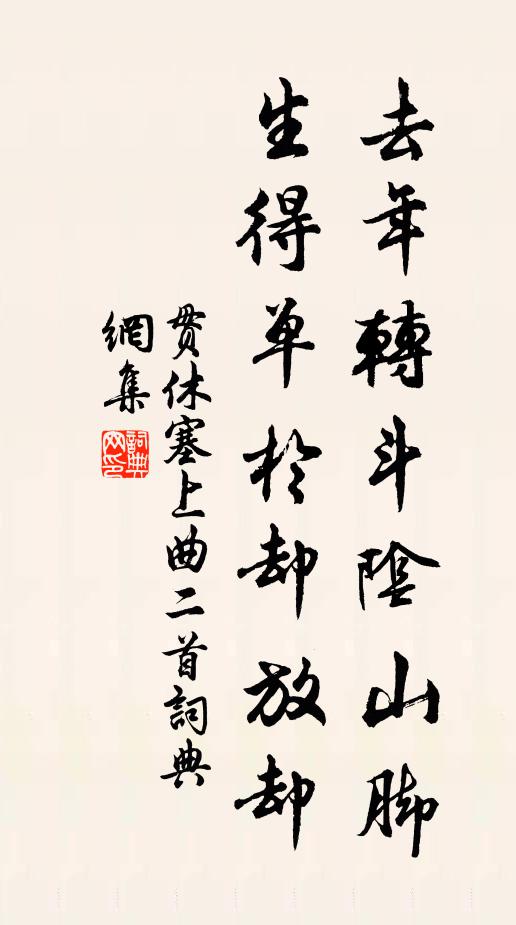 去年轉斗陰山脚
生得单於却放却
贯休塞上曲二首詞典
網集
詞典网印